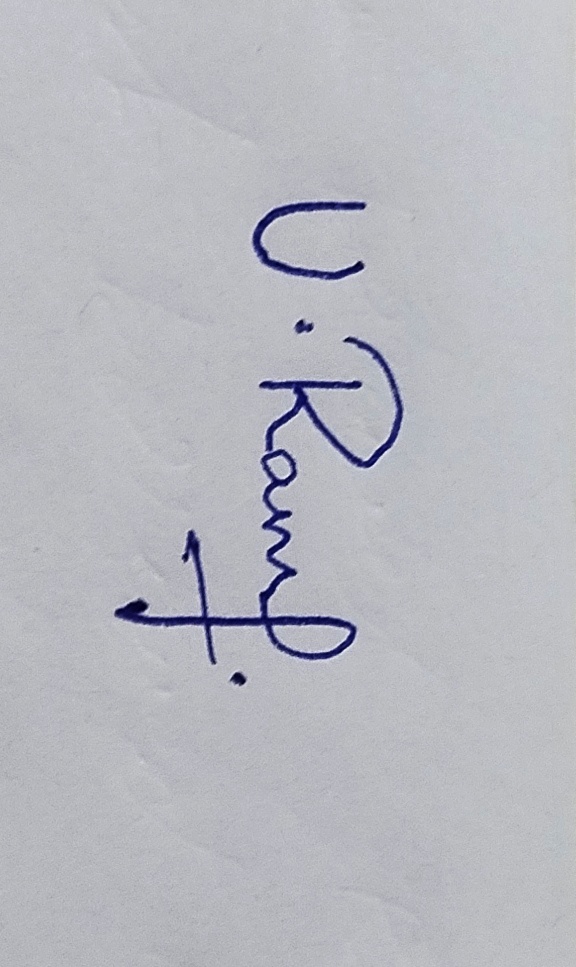 U. Ramf.